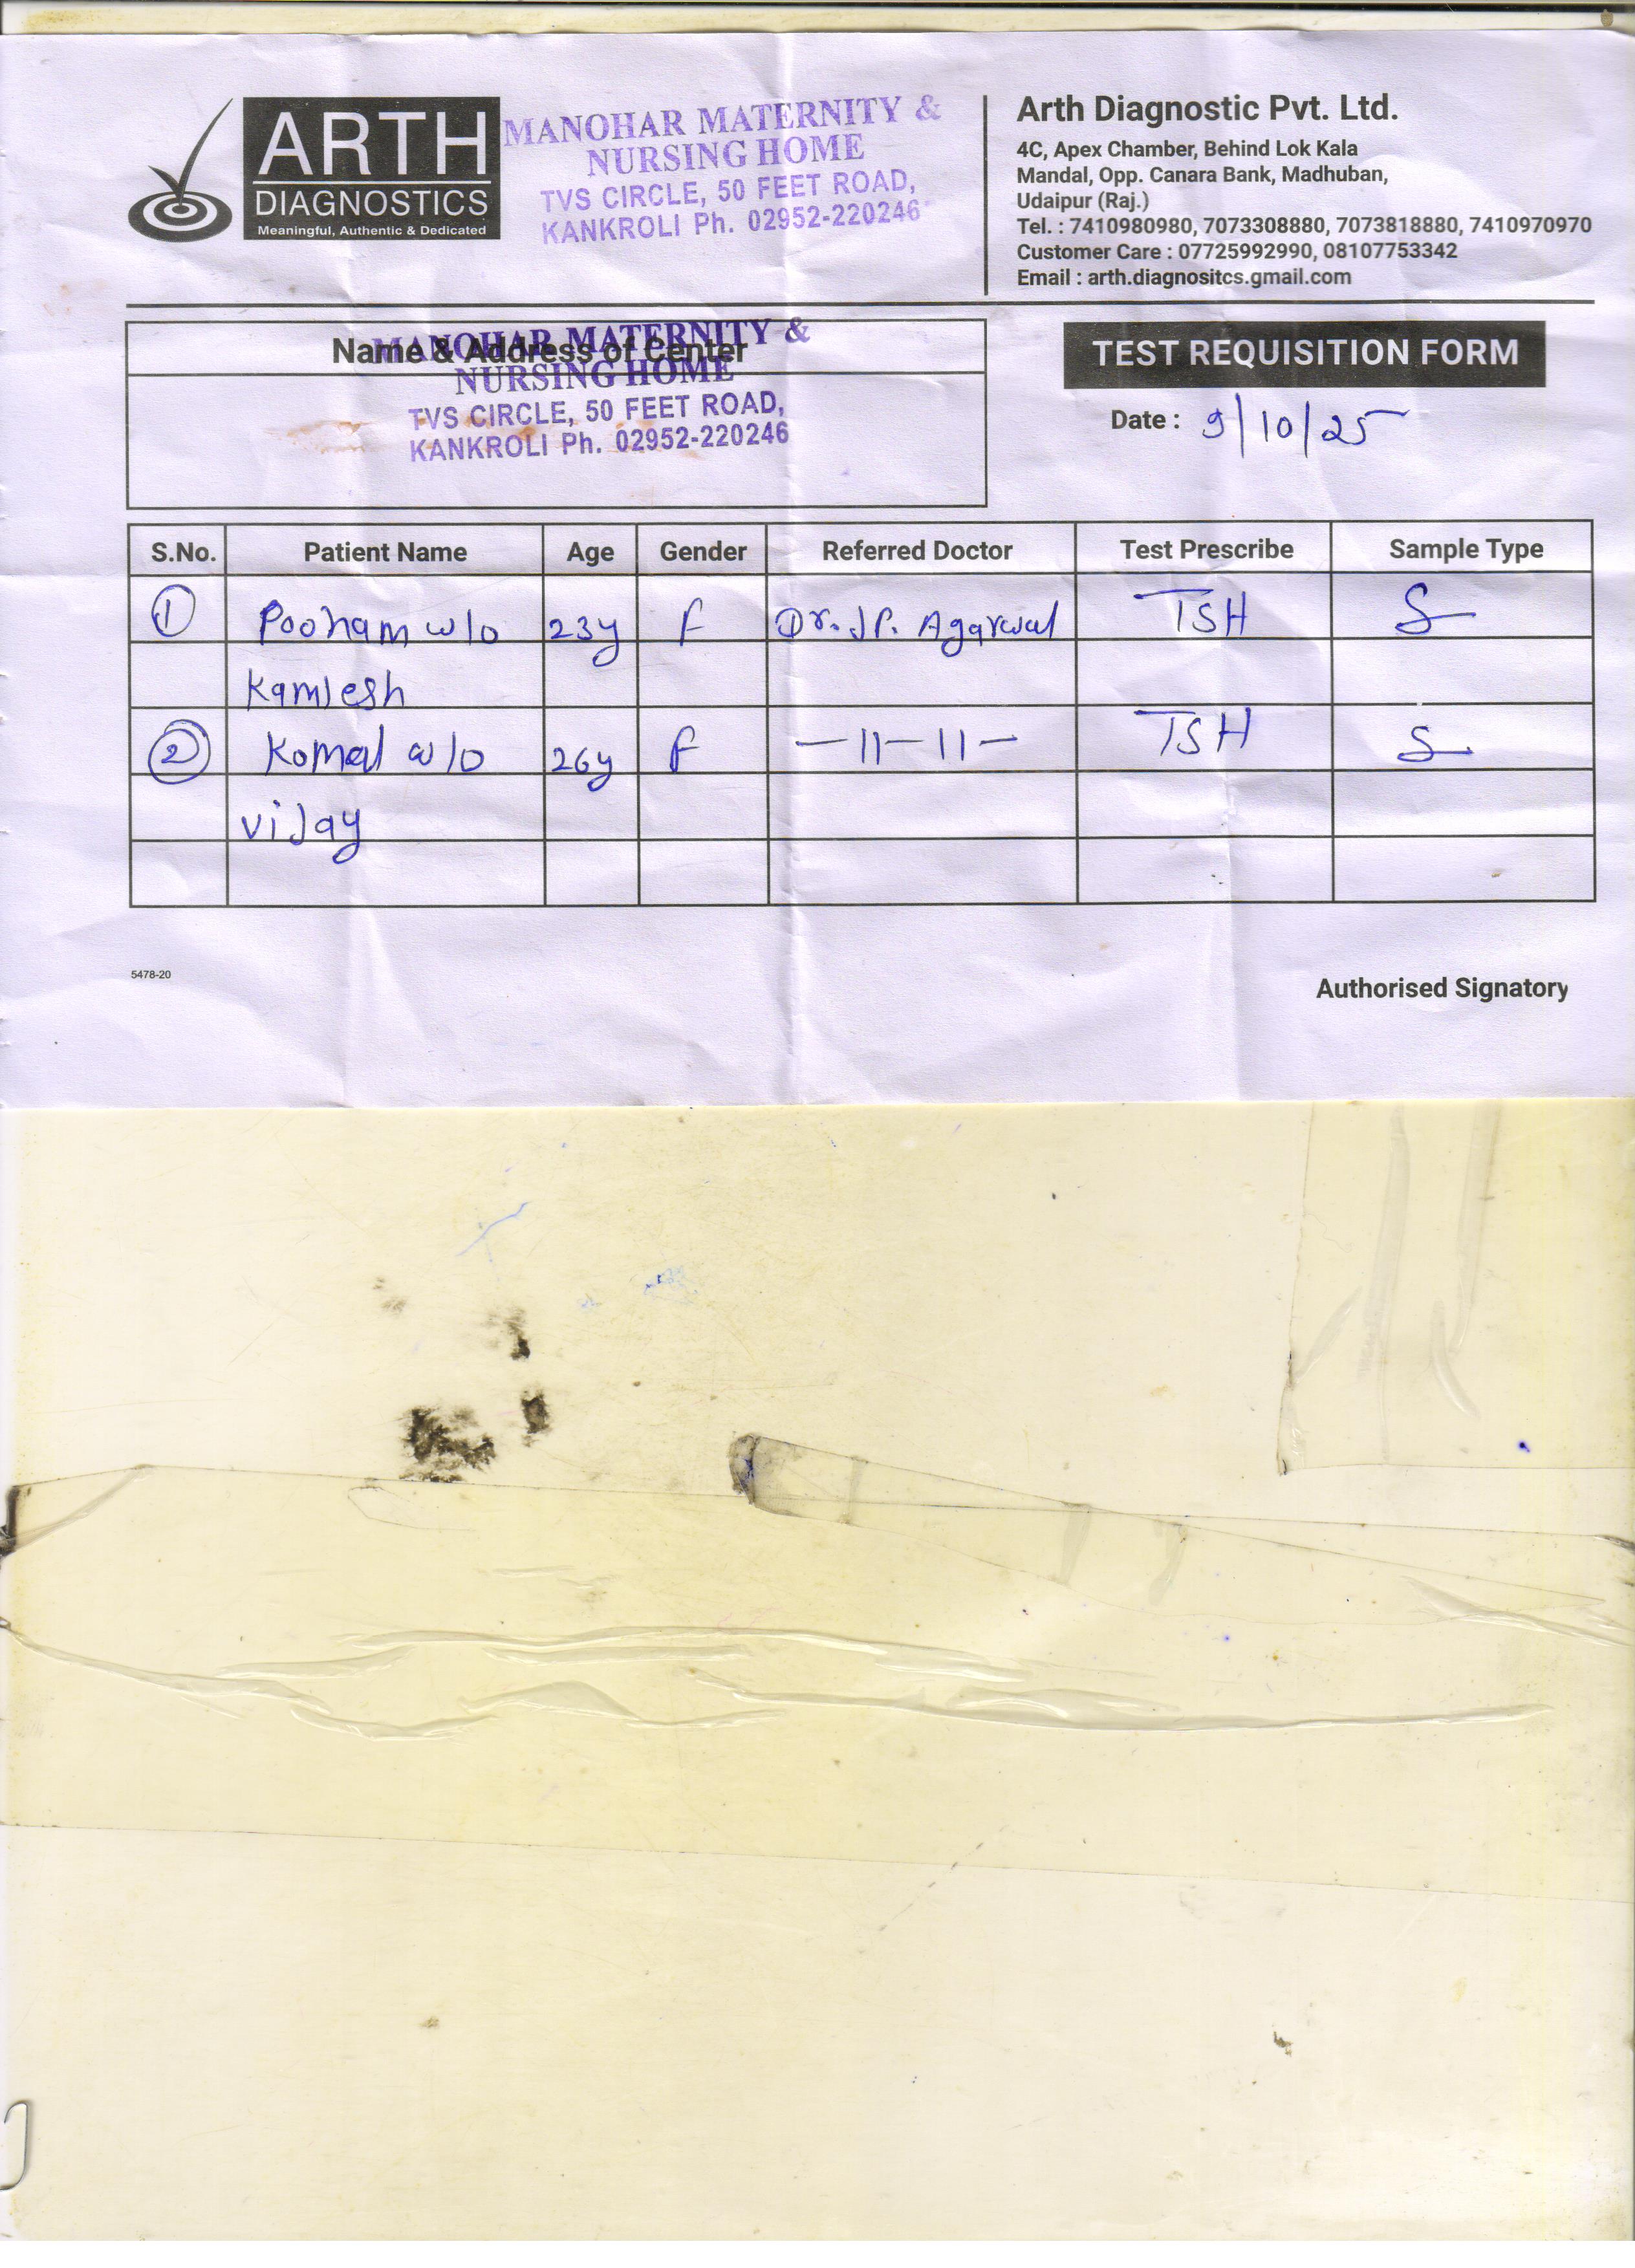 ARTH
DIAGNOSTICS
Meaningful, Authentic & Dedicated
MANOHAR MATERNITY &
NURSING HOME
TVS CIRCLE, 50 FEET ROAD,
KANKROLI Ph. 02952-220246
Arth Diagnostic Pvt. Ltd.
4C, Apex Chamber, Behind Lok Kala
Mandal, Opp. Canara Bank, Madhuban,
Udaipur (Raj.)
Tel. : 7410980980, 7073308880, 7073818880, 7410970970
Customer Care : 07725992990, 08107753342
Email : arth.diagnositcs.gmail.com
Name & Address of Center
MANOHAR MATERNITY &
NURSING HOME
TVS CIRCLE, 50 FEET ROAD,
KANKROLI Ph. 02952-220246
TEST REQUISITION FORM
Date : 9/10/25
S.No. Patient Name Age Gender Referred Doctor Test Prescribe Sample Type
1 Poonam w/o 23y F Dr. J P. Agarwal TSH S
Kamlesh
2 Komal w/o 26y F —11—11— TSH S
viJay
5478-20
Authorised Signatory